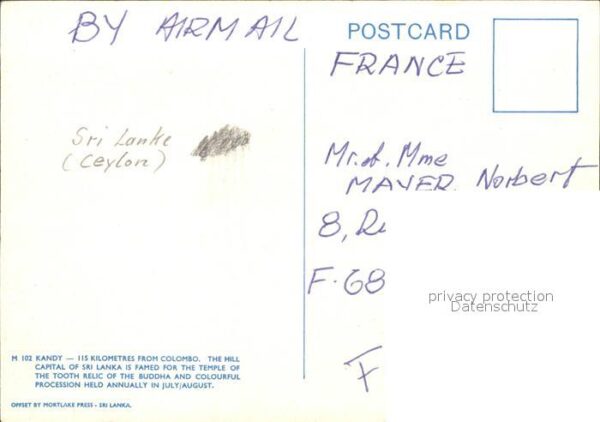 BY AIRMAIL
POSTCARD
FRANCE
Sri Lanke
(Ceylon)
Mr. et. Mme
MAYER Norbert
8, Ru
F-68
privacy protection
Datenschutz
F
M 102 KANDY — 115 KILOMETRES FROM COLOMBO. THE HILL
CAPITAL OF SRI LANKA IS FAMED FOR THE TEMPLE OF
THE TOOTH RELIC OF THE BUDDHA AND COLOURFUL
PROCESSION HELD ANNUALLY IN JULY/AUGUST.
OFFSET BY MORTLAKE PRESS - SRI LANKA.